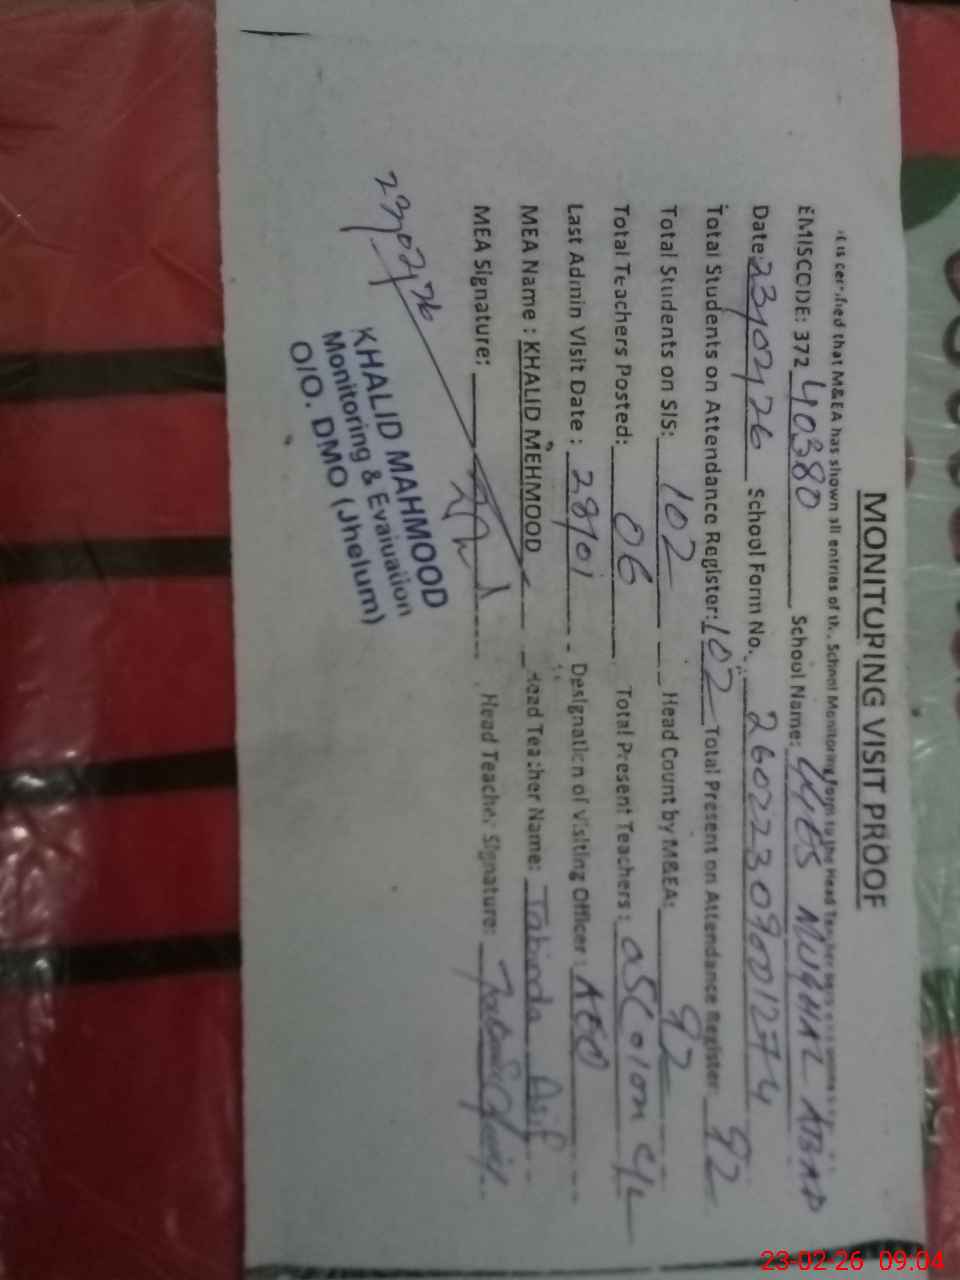 MONITORING VISIT PROOF
It is certified that M&EA has shown all entries of the School Monitoring form to the Head Teacher
EMISCODE: 372 40380 School Name: MUGHAL ABAD
Date: 23/02/26 School Form No. 260223090012774
Total Students on Attendance Register: 102 Total Present on Attendance Register 92
Total Students on SIS: 102 Head Count by M&EA: 92
Total Teachers Posted: 06 Total Present Teachers: 05(01 on C/L
Last Admin Visit Date : 28/01 Designation of Visiting Officer : AEO
MEA Name : KHALID MEHMOOD Head Teacher Name: Tabinda Asif
MEA Signature: Head Teacher Signature:
23/02/26
KHALID MAHMOOD
Monitoring & Evaluation
O/O. DMO (Jhelum)
23-02-26 09:04